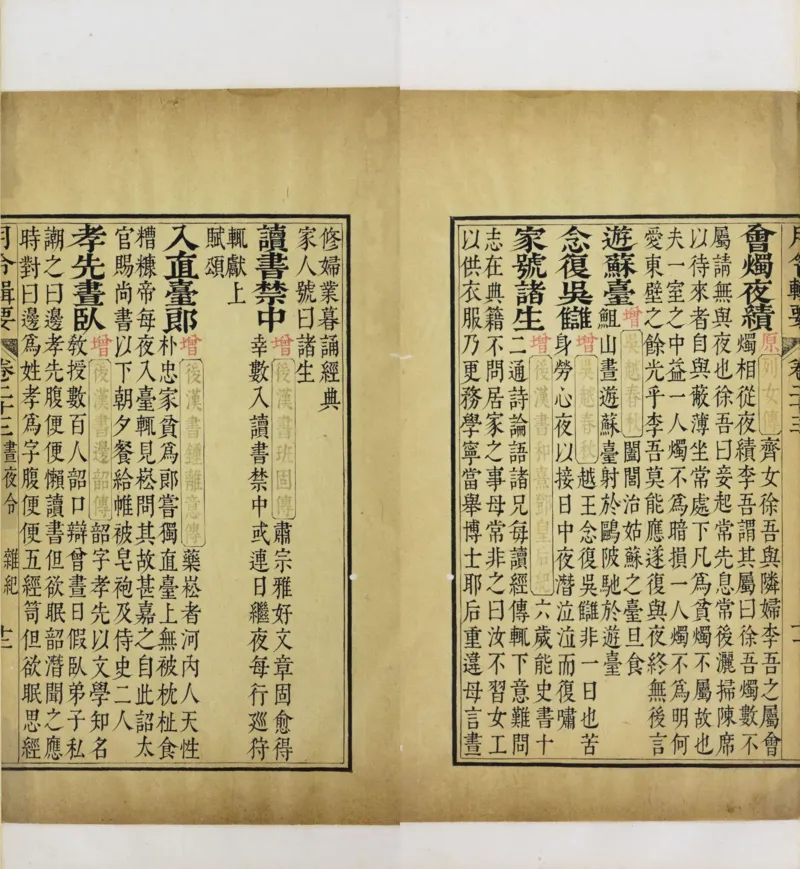 月令輯要 卷二十三 十一
會燭夜績 原 列女傳 齊女徐吾與隣婦李吾之屬會
燭相從夜績李吾謂其屬曰徐吾燭數不
屬請無與夜也徐吾曰妾起常先息常後灑掃陳席
以待來者自與蔽薄坐常處下凡爲貧燭不屬故也
夫一室之中益一人燭不爲暗損一人燭不爲明何
愛東壁之餘光乎李吾莫能應遂復與夜終無後言
遊蘇臺 增 吳越春秋 闔閭治姑蘇之臺旦食
䱉山晝遊蘇臺射於鷗陂馳於遊臺
念復吳讎 增 吳越春秋 越王念復吳讎非一日也苦
身勞心夜以接日中夜潛泣泣而復嘯
家號諸生 增 後漢書和熹鄧皇后紀 六歲能史書十
二通詩論語諸兄每讀經傳輒下意難問
志在典籍不問居家之事母常非之曰汝不習女工
以供衣服乃更務學寧當舉博士耶后重違母言晝
修婦業暮誦經典
家人號曰諸生
讀書禁中 增 後漢書班固傳 肅宗雅好文章固愈得
幸數入讀書禁中或連日繼夜每行廵狩
輒獻上
賦頌
入直臺郎 增 後漢書鍾離意傳 藥崧者河內人天性
朴忠家貧爲郎嘗獨直臺上無被枕杫食
糟糠帝每夜入臺輒見崧問其故甚嘉之自此詔太
官賜尚書以下朝夕餐給帷被皂袍及侍史二人
孝先晝臥 增 後漢書邊韶傳 韶字孝先以文學知名
教授數百人韶口辯曾晝日假臥弟子私
潮之曰邊孝先腹便便懶讀書但欲眠韶潛聞之應
時對曰邊爲姓孝爲字腹便便五經笥但欲眠思經
月令輯要 卷二十三 晝夜令 雜紀 十二